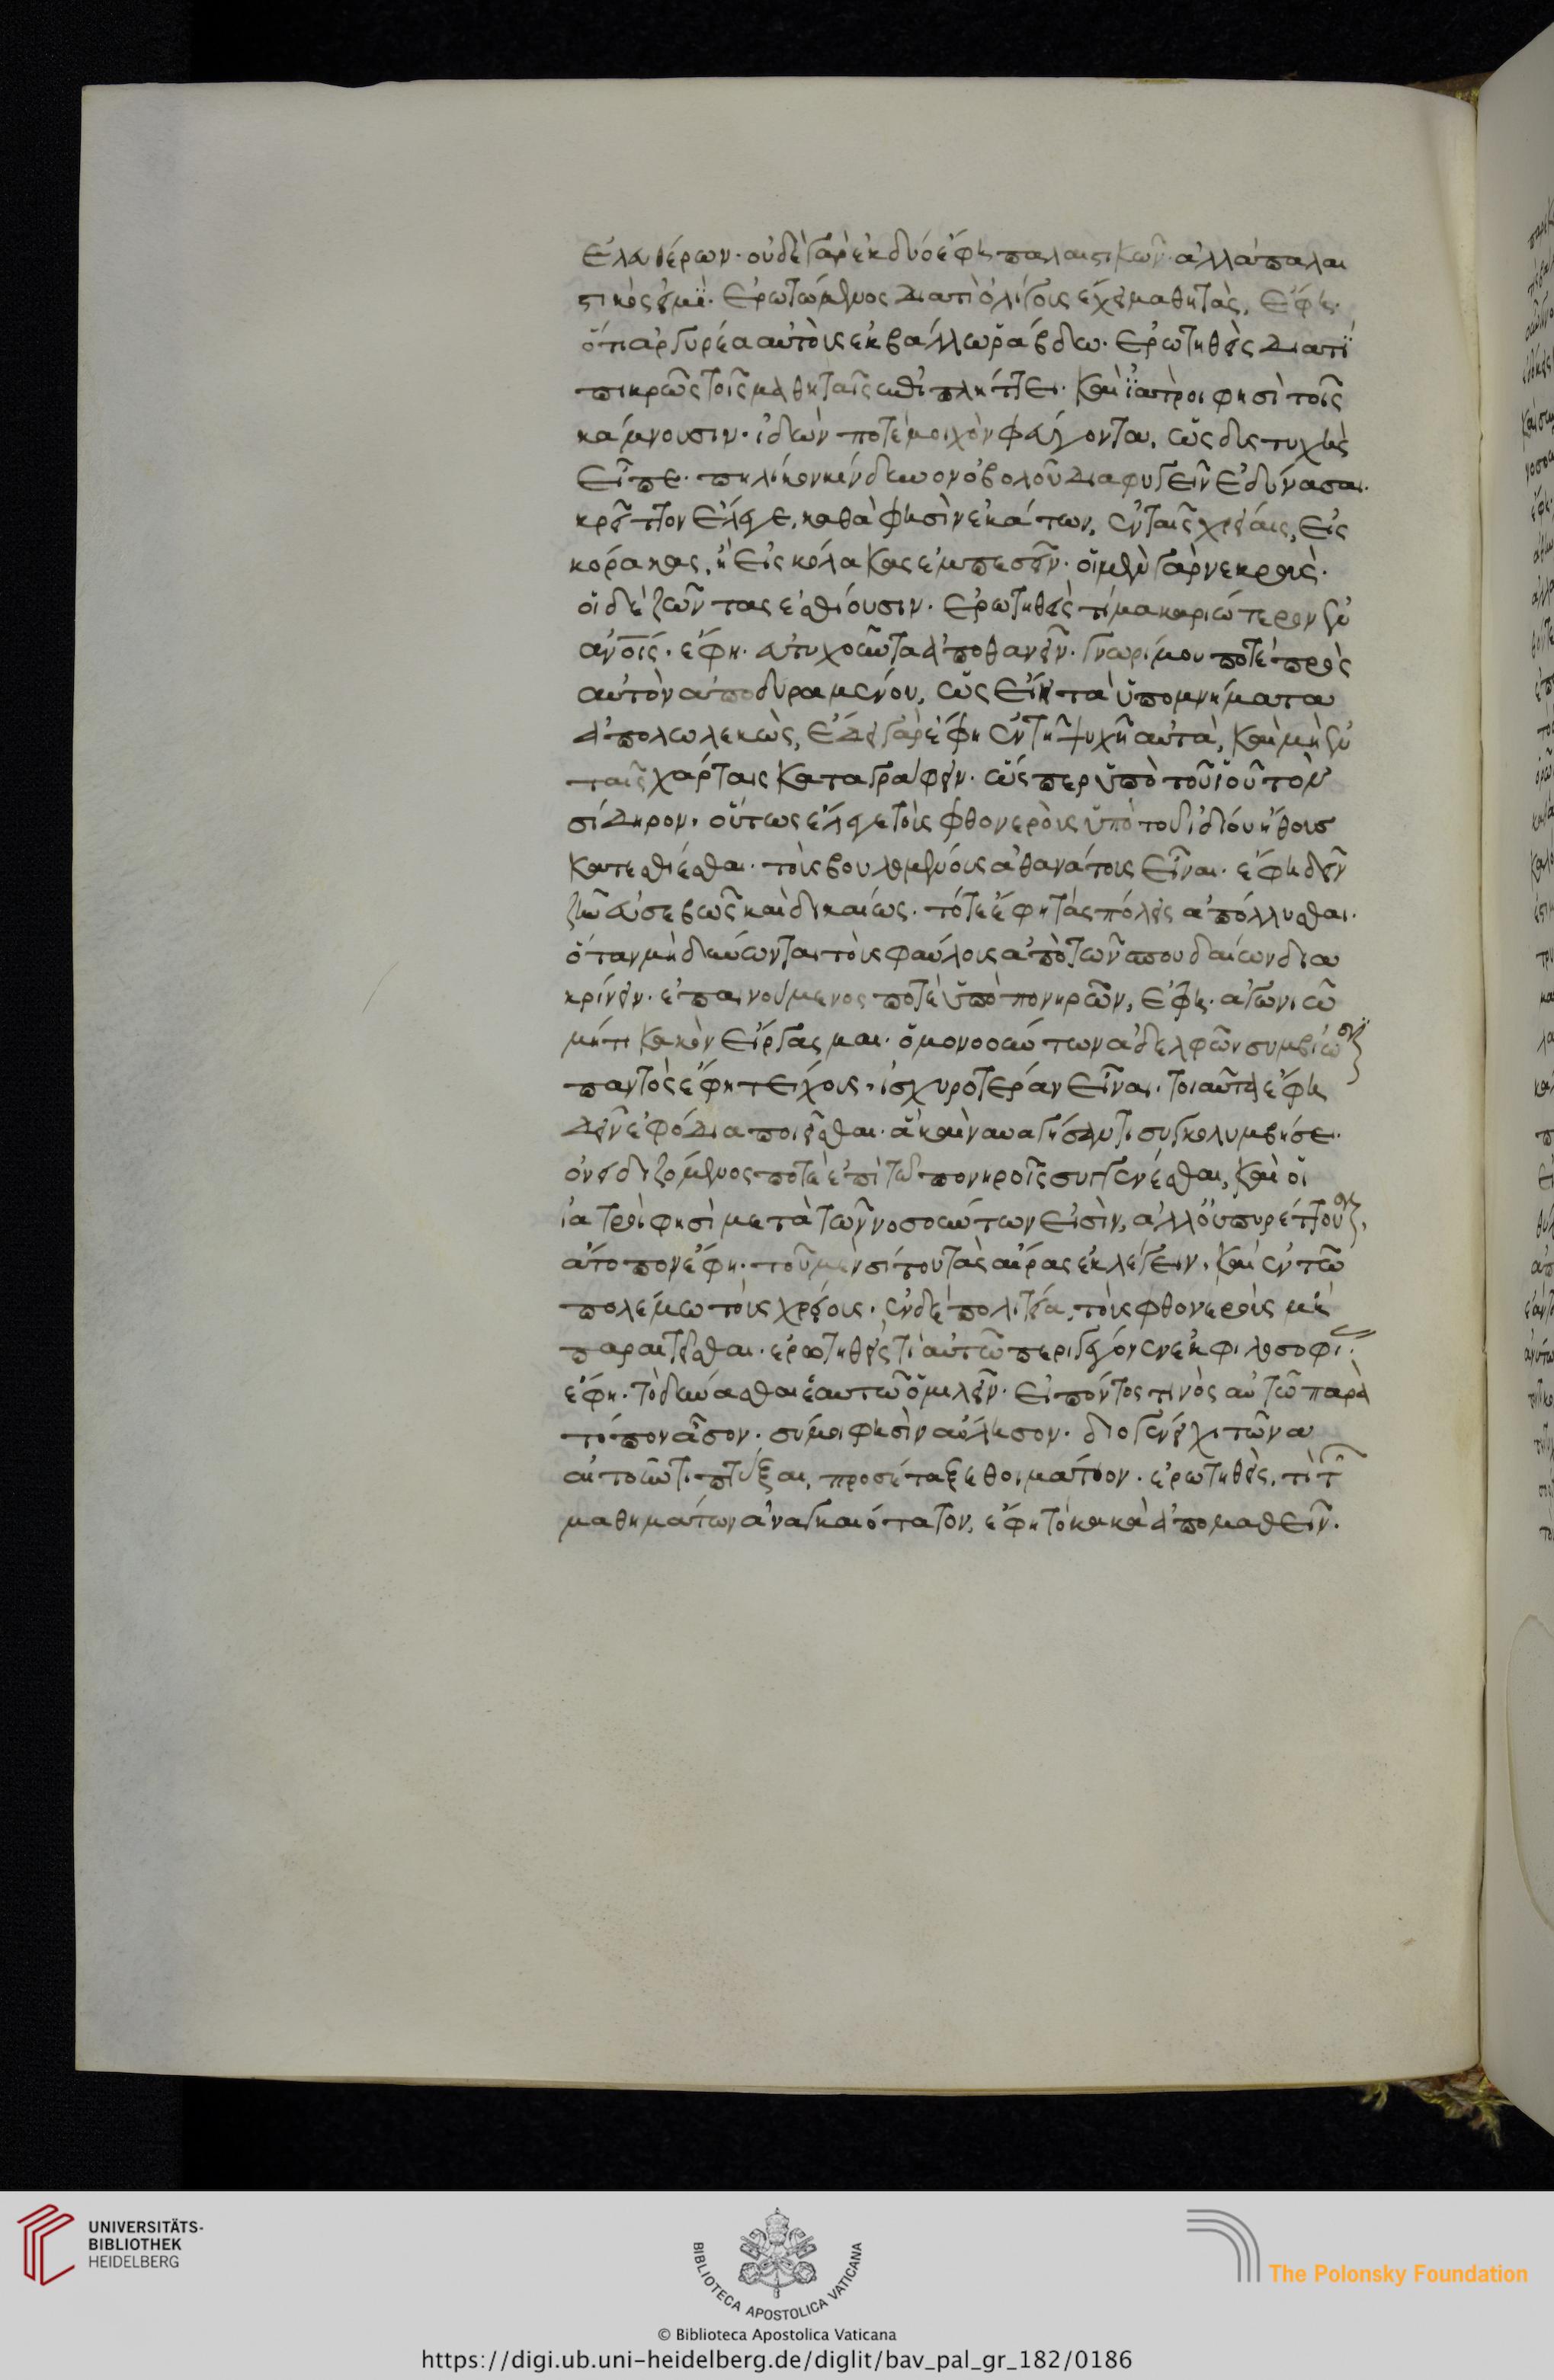 ἐλευθέρων· οὐδὲ γὰρ ἐκ δύο ἔφη παλαιστικῶν· ἀλλὰ παλαι
στικός εἰμϊ· Ἐρωτώμενος διατὶ ὀλίγους ἔχει μαθητὰς, ἔφη·
ὅτι ἀργυρέα αὐτοὺς ἐκβάλλω ῥάβδω· Ἐρωτηθεὶς διατϊ
πικρῶς τοῖς μαθηταῖς ἐπιπλήττει· καὶ ϊατροι φησὶ τοῖς
κάμνουσιν· ἰδὼν ποτὲ μοιχὸν φεύγοντα, ὦ δυστυχὴς
εἶπε· πηλίκον κίνδυνον ὀβολοῦ διαφυγεῖν ἐδύνασαι·
κρεῖττον ἔλεγε, καθά φησὶν ἑκάτων, ἐν ταῖς χρείαις, εἰς
κόρακας, ἢ εἰς κόλακας ἐμπεσεῖν· οἱ μὲν γὰρ νεκροὺς·
οἱ δὲ ζῶντας ἐσθίουσιν· Ἐρωτηθεὶς τί μακαριώτερον ἐν
ἀνοις· ἔφη· εὐτυχοῦντα ἀποθανεῖν· γνωρίμου ποτὲ πρὸς
αὐτὸν ἀποδυραμένου, ὡς εἴη τὰ ὑπομνήματα
ἀπολωλεκὼς, ἔδει γὰρ ἔφη ἐν τῆ ψυχῆ αὐτὰ, καὶ μὴ ἐν
ταῖς χάρταις καταγράφειν· ὥσπερ ὑπὸ τοῦ ἰοῦ τὸν
σίδηρον· οὕτως ἔλεγε τοὺς φθονεροὺς ὑπὸ τοῦ ἰδίου ἤθους
κατεσθίεσθαι· τοὺς βουλομένους ἀθανάτους εἶναι· ἔφη δεῖν
ζῆν εὐσεβῶς καὶ δικαίως· τότε ἔφη τὰς πόλεις ἀπόλλυσθαι·
ὅταν μὴ δύνωνται τοὺς φαύλους ἀπὸ τῶν σπουδαίων δια
κρίνειν· ἐπαινούμενος ποτὲ ὑπὸ πονηρῶν, ἔφη· ἀγωνιῶ
μήτι κακὸν εἴργασμαι· ὁμονοούντων ἀδελφῶν συμβίωσιν
παντὸς ἔφη τείχους ἰσχυροτέραν εἶναι· τοιαῦτα ἔφη
δεῖν ἐφόδια ποιεῖσθαι· ἃ καὶ ναυαγήσαντι συγκολυμβήσει·
ὀνειδιζόμενος ποτὲ ἐπὶ τῶ πονηροῖς συγγενέσθαι, καὶ οἱ
ἰατροὶ φησὶ μετὰ τῶν νοσούντων εἰσὶν, ἀλλ' οὐ πυρέττουσιν,
ἄτοπον ἔφη· τοῦ μὲν σίτου τὰς αἴρας ἐκλέγειν, καὶ ἐν τῶ
πολέμω τοὺς ἀχρείους· ἐν δὲ πολιτεία, τοὺς φθονεροὺς μὴ
παραιτεῖσθαι· ἐρωτηθεὶς τί αὐτῶ περιγέγονεν ἐκ φιλοσοφί
ἔφη· τὸ δύνασθαι ἑαυτῶ ὁμιλεῖν· εἰπόντος τινὸς αὐτῶ παρὰ
τόπον ἆσον· σύ μοι φησὶν αὔλησον· διογένει χιτῶνα
αἰτοῦντι πτύξαι, προσέταξε θοιμάτιον· ἐρωτηθεὶς, τί τῶν
μαθημάτων ἀναγκαιότατον, ἔφη τὸ κακὰ ἀπομαθεῖν·
UNIVERSITÄTS-
BIBLIOTHEK
HEIDELBERG
BIBLIOTECA APOSTOLICA VATICANA
The Polonsky Foundation
© Biblioteca Apostolica Vaticana
https://digi.ub.uni-heidelberg.de/diglit/bav_pal_gr_182/0186